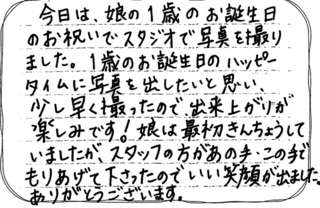 今日は、娘の1歳のお誕生日
のお祝いでスタジオで写真を撮り
ました。1歳のお誕生日のハッピー
タイムに写真を出したいと思い、
少し早く撮ったので、出来上がりが
楽しみです!娘は最初きんちょうして
いましたが、スタッフの方があの手・この手で
もりあげて下さったのでいい笑顔が出ました。
ありがとうございます。